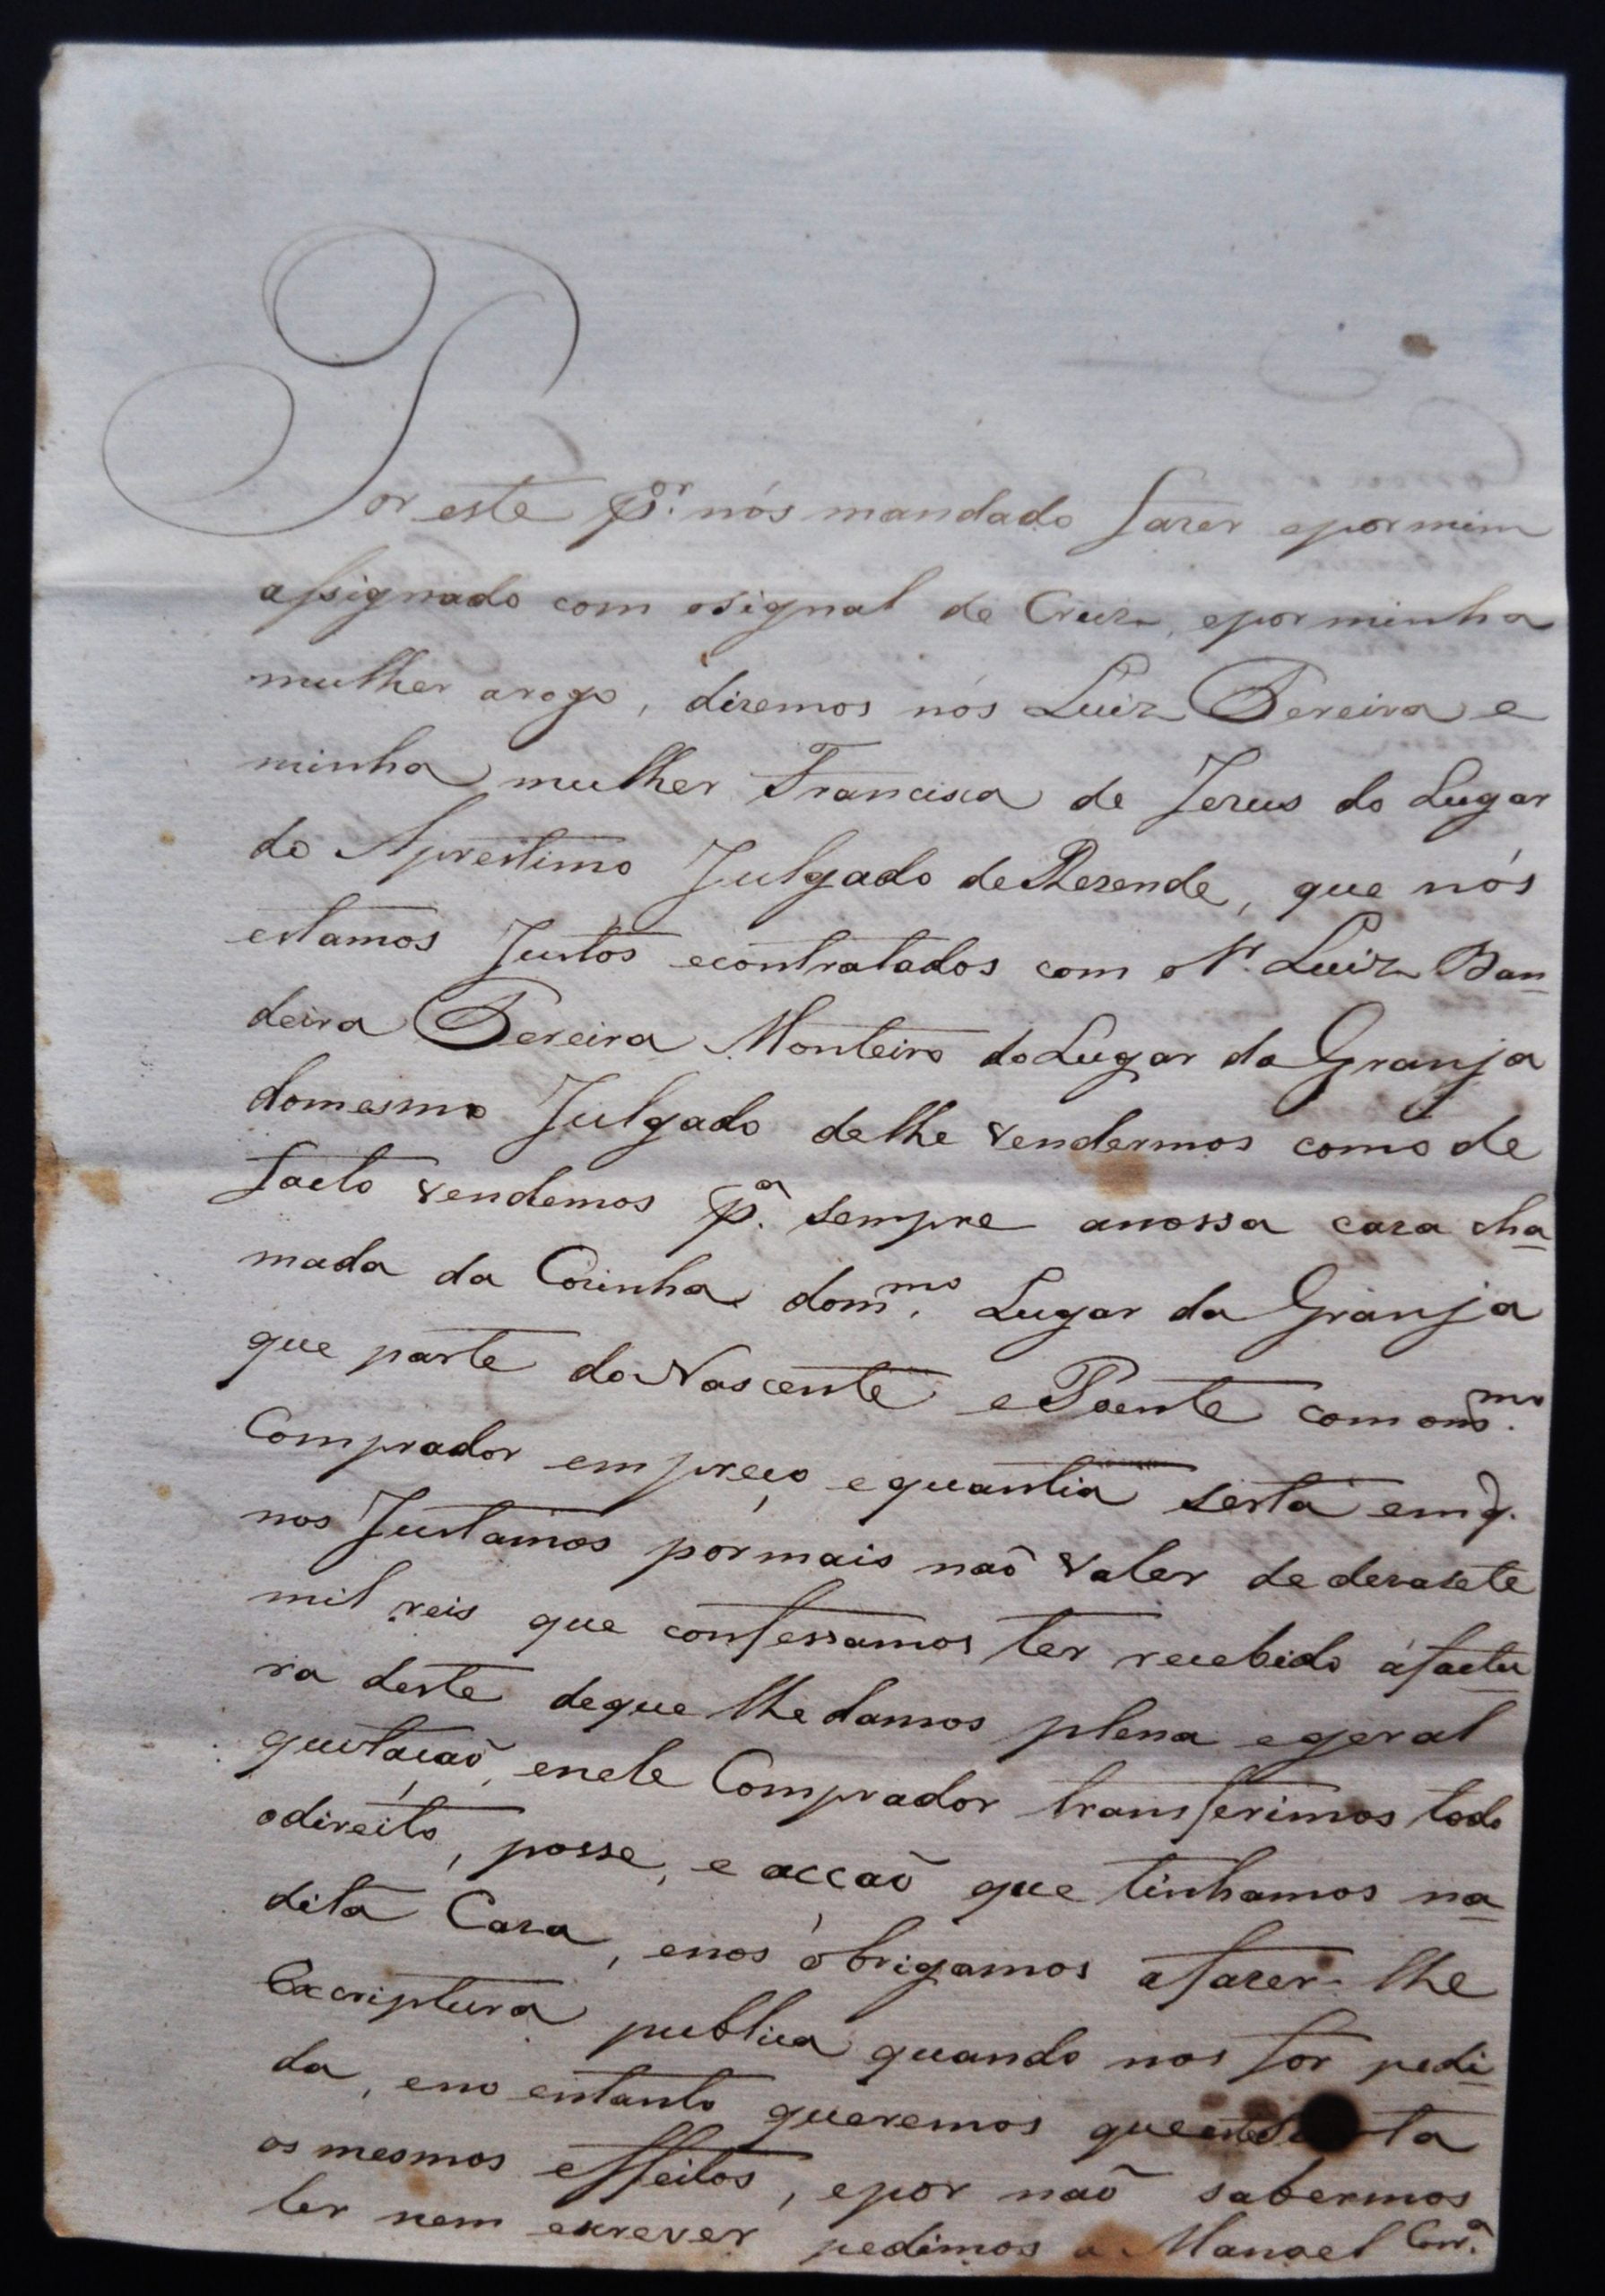 Por este p.r nós mandado fazer epor mim
assignado com osignal de Cruz, epor minha
mulher arogo, dizemos nós Luiz Pereira e
minha mulher Francisca de Jezus do Lugar
do Aprestimo Julgado de Rezende, que nós
estamos Justos econtratados com o Sr. Luiz Ban-
deira Pereira Monteiro do Lugar da Granja
domesmo Julgado delhe vendermos como de
facto vendemos p.a sempre anossa caza cha-
mada da Cozinha dom.mo Lugar da Granja
que parte do Nascente e Poente com om.mo
Comprador em preço equantia serta em q.
nos Justamos por mais naõ valer de dezasete
mil reis que confessamos ter recebido áfactu-
ra deste deque lhe damos plena egeral
quitaçaõ, enele Comprador transferimos todo
odireito, posse, e acçaõ que tinhamos na-
dita Caza, enos óbrigamos afazer-lhe
Excriptura publica quando nos for pedi-
da, eno entanto queremos que este ta
os mesmos effeitos, epor naõ sabermos
ler nem escrever pedimos a Manoel Corr.a